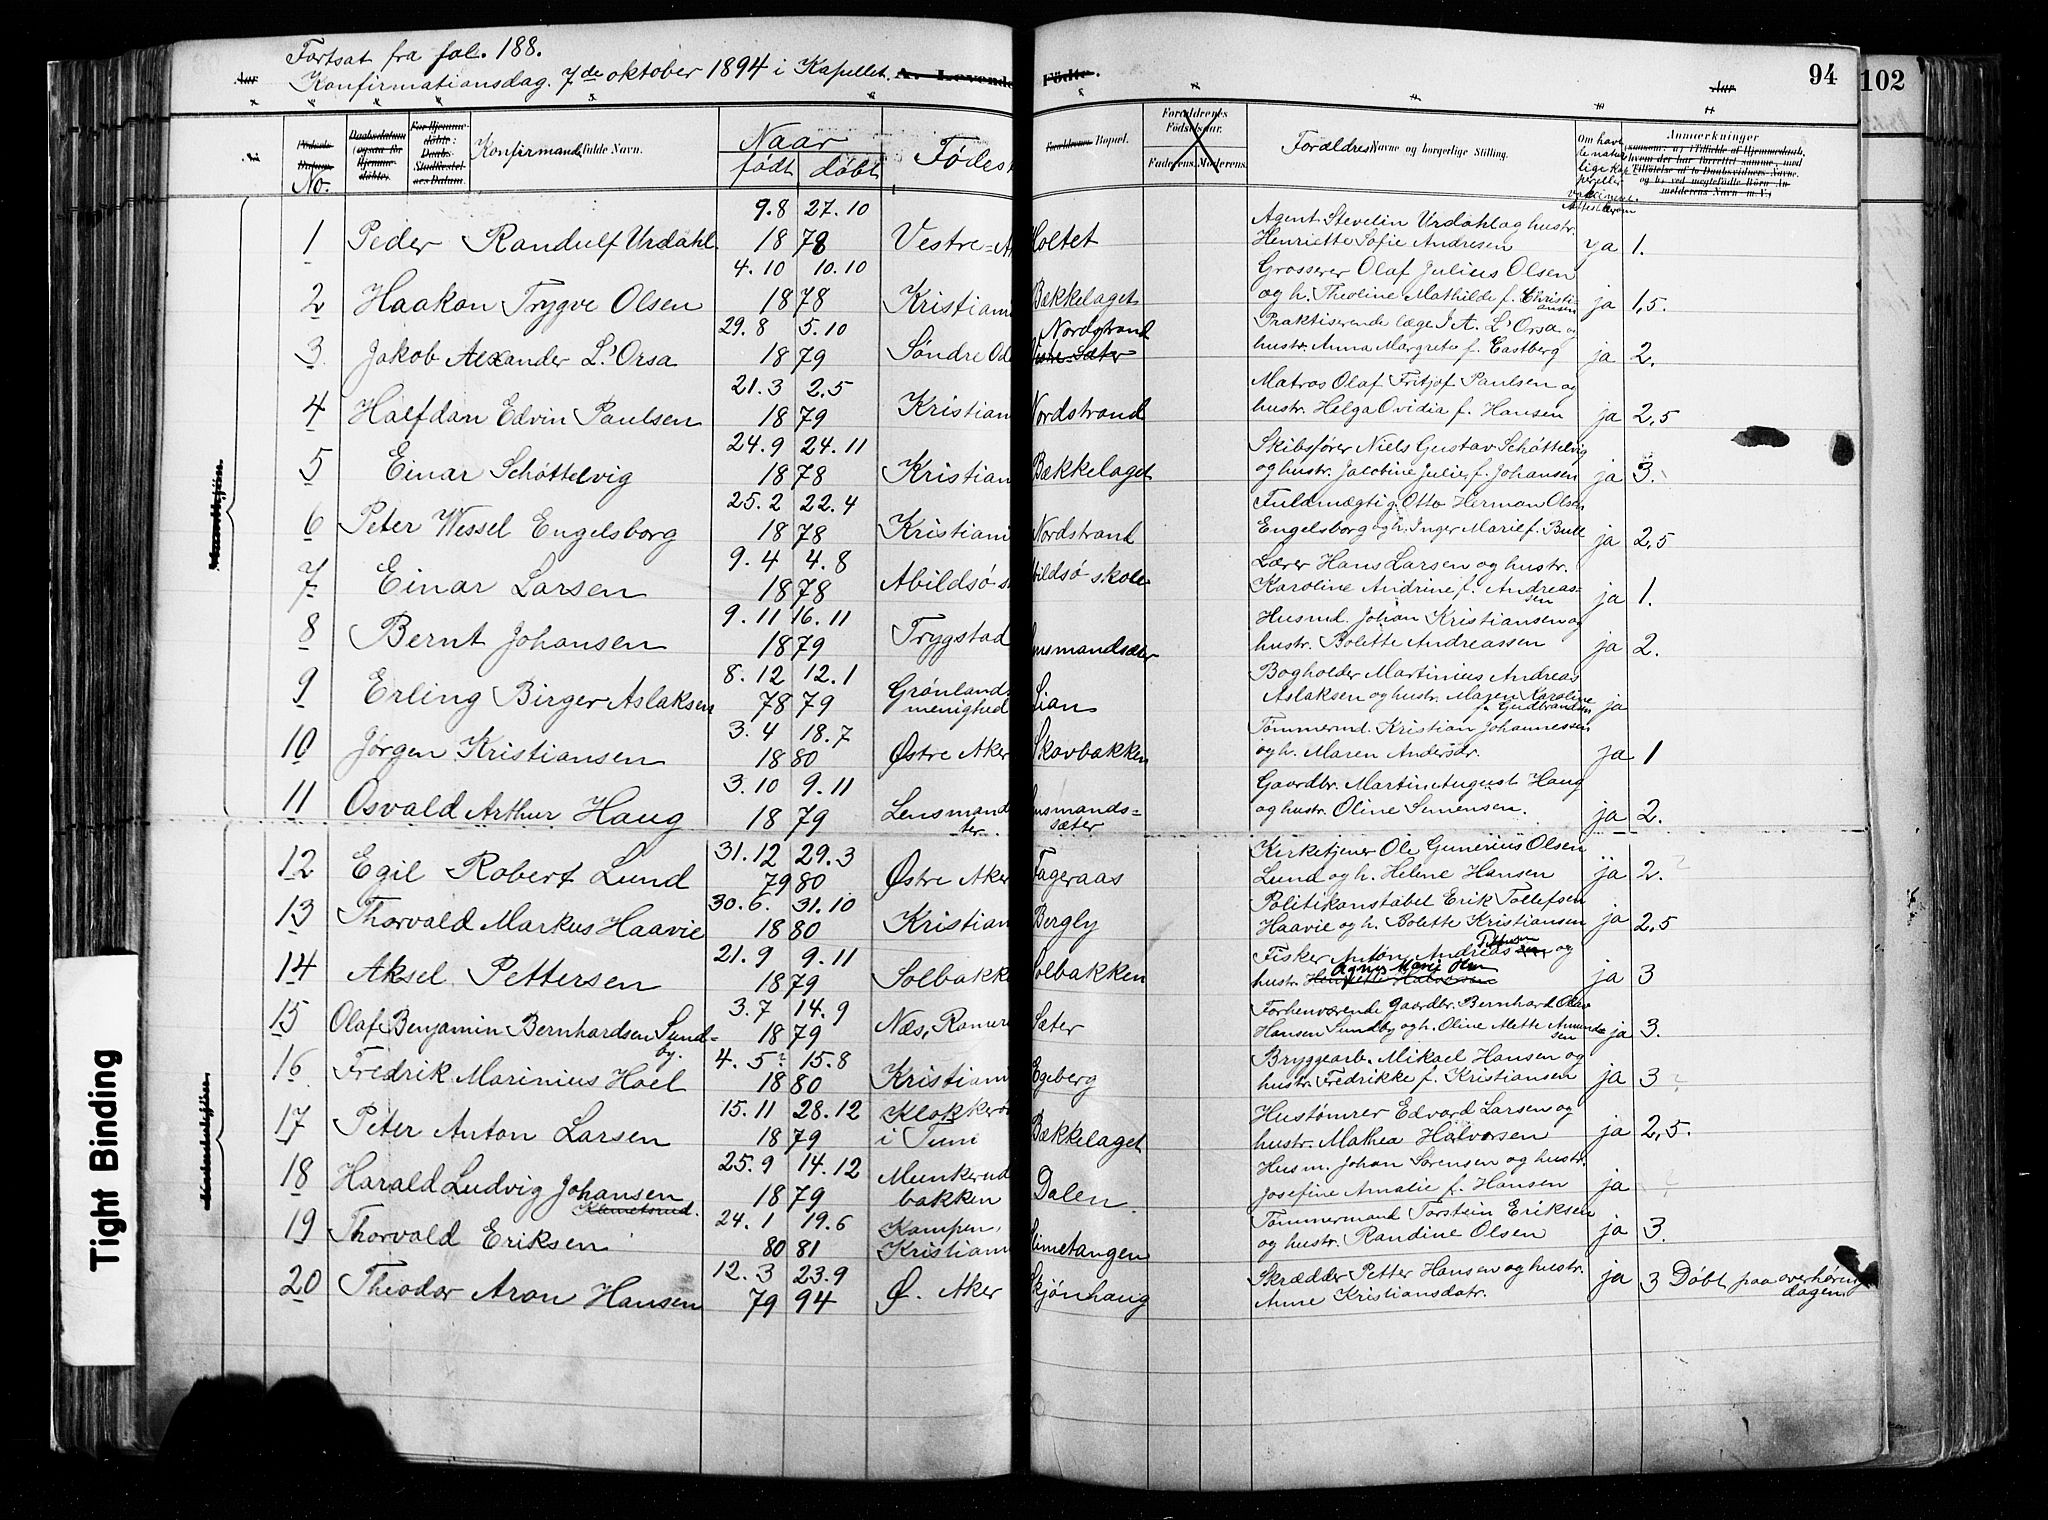 Fortsat fra fol. 188.
Konfirmationsdag. 7de oktober 1894 i Kapellet. A. Levende Fødte. 94 102
Aar Aar
No. Konfirmand. fulde Navn. Naar født døbt Fødest Bopæl. Forældrenes Fødselsaar. Faderens. Moderens. Forældres Navne og borgerlige Stilling. Om have de natur lige kop per eller vakcineret. Anmærkninger
9.8 27.10 Agent Stevelin Urdahl og hustr.
1 Peder Randulf Urdahl. 1878 Vestre=A Holtet Henriette Sofie Andresen ja 1.
4.10 10.10 Grosserer Olaf Julius Olsen
2 Haakon Trygve Olsen 1878 Kristiani Bækkelaget og h. Theoline Mathilde f. Christiansen ja 1,5.
29.8 5.10 Nordstrand Praktiserende læge J A. L'Orsa og
3 Jakob Alexander L'Orsa 1879 Søndre Od hustr. Anna Margrete f. Eastberg ja 2.
21.3 2.5 Matros Olaf Fritjof Paulsen og
4 Halfdan Edvin Paulsen 1879 Kristian Nordstrand hustr. Helga Ovidia f. Hansen ja 2,5
24.9 24.11 Skibsfører Niels Gustav Schøttelvig
5 Einar Schøttelvig 1878 Kristian Bækkelaget og hustr. Jacobine Julie, f. Johansen ja 3.
25.2 22.4 Fuldmægtig Otto Herman Olsen
6 Peter Wessel Engelsborg 1878 Kristiani Nordstrand Engelsborg og h. Inger Marie f. Bull ja 2,5
9.4 4.8 Lærer Hans Larsen og hustr.
7 Einar Larsen 1878 Abildsø s bildsø skole Karoline Andrine f. Andreassen ja 1.
9.11 16.11 Husmd. Johan Kristiansen og
8 Bernt Johansen 1879 Trygstad ensmandsæter hustr. Bolette Andreassen ja 2.
8.12 12.1 Bogholder Martinius Andreas
9 Erling Birger Aslaksen 78 79 Grønlands menighed Lian Aslaksen og hustr. Maren Karoline f. Gudbrandsen ja
3.4 18.7 Tømmermd. Kristian Johannessen
10 Jørgen Kristiansen 1880 Østre Aker Skovbakken og h. Maren Andersdr. ja 1
3.10 9.11 Gaardbr. Martin August Haug
11 Osvald Arthur Haug 1879 Lensmand ter. ensmands=sæter og hustr. Oline Simensen. ja 2.
31.12 29.3 Kirketjener Ole Gunerius Olsen
12 Egil Robert Lund 79 80 Østre Aker Fageraas Lund og h. Helene Hansen ja 2.
30.6. 31.10 Politikonstabel Erik Tollefsen
13 Thorvald Markus Haavie 1880 Kristian Bergly Haavie og h. Bolette Kristiansen ja 2,5
21.9 9.11 Fisker Anton Andreas og
14 Aksel Pettersen 1879 Solbakke Solbakken hustr. Agnes Marie Olsen ja 3
3.7 14.9 Forhenværende Gaardbr. Bernhard Olav
15 Olaf Benjamin Bernhardsen Sundby. 1879 Næs, Romeri Sæter Hansen Sundby og h. Oline Alette Amundsen ja 3.
4. 5? 15.8 Bryggearb. Mikael Hansen og
16 Fredrik Marinius Hoel 1880 Kristiani Egeberg hustr. Fredrikke f. Kristiansen ja 3
15.11 28.12 Hustømrer Edvard Larsen og
17 Peter Anton Larsen 1879 i Tuni Bækkelaget hustr. Mathea Halvorsen ja 2,5.
25.9 14.12 Husm. Johan Sørensen og hustr.
18 Harald Ludvig Johansen Klemetsrud. 1879 Munkerud bakken Dalen. Josefine Amalie f. Hansen ja
24.1 19.6 Tømmermand Torstein Eriksen
19 Thorvald Eriksen 80 81 Kampen, Kristiani Simetangen og hustr. Randine Olsen ja 3.
12.3 23.9 Skrædder Petter Hansen og hustr.
20 Theodor Aron Hansen 79 94 Ø. Aker Skjønhaug Anne Kristiansdatr. ja 3 Døbt paa overhørings dagen.
Tight Binding